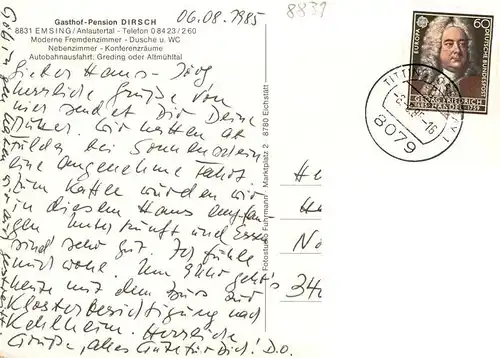 Gasthof-Pension DIRSCH
8831 EMSING/Anlautertal - Telefon 0 84 23 / 2 60
Moderne Fremdenzimmer - Dusche u. WC
Nebenzimmer - Konferenzräume
Autobahnausfahrt: Greding oder Altmühltal
06.08.1985
8831
Lieber Hans-Jörg
herzliche Grüße von
hier sendet Dir Deine
Mutter. Wir hatten
bei Sonnenschein
eine angenehme Fahrt
zum Kaffee wurden wir
in diesem Haus empfan
gen Unterkunft und Essen
sind sehr gut. Ich fühle
mich wohl. Um Uhr geht's
heute mit dem Bus zur
Klosterbesichtigung nach
Kehlheim. Herzliche
Grüße, alles Gute für Dich! D.O.
Fotostudio Fuhrmann Marktplatz 2 8780 Eichstätt
EUROPA
60
DEUTSCHE BUNDESPOST
GEORG FRIEDRICH
HÄNDEL 1685-1759
8079
He
Ha
No
340